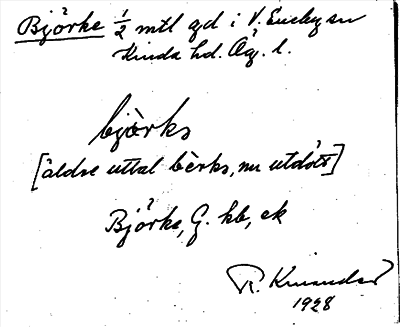 Björke ½ mtl gd i V. Eneby sn
Kinda hd. Ög. l.
bjo̊rks
[äldre uttal be̊rks, nu utdött]
Björke, G. kb, ek
R. Kinander
1928